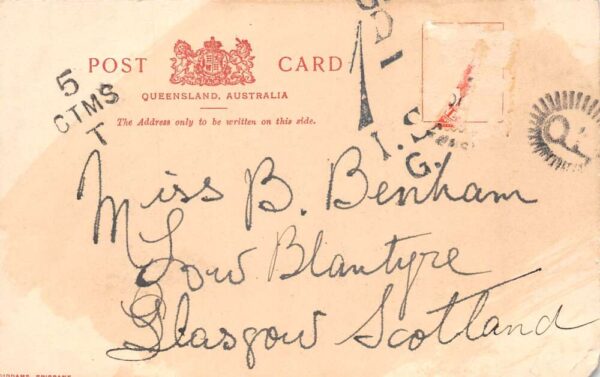 POST CARD
QUEENSLAND, AUSTRALIA
The Address only to be written on this side.
5
CTMS
T
I. S.
G.
Miss B. Benham
Low Blantyre
Glasgow Scotland